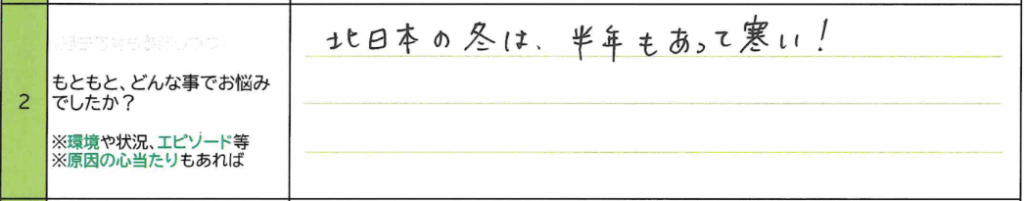 2
もともと、どんな事でお悩み
でしたか？
※環境や状況、エピソード等
※原因の心当たりもあれば
北日本の冬は、半年もあって寒い!